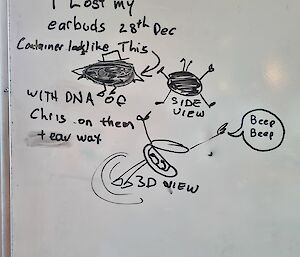 I Lost my
earbuds 28th Dec
Container looks like This
WITH DNA OF
Chris on them
+ ear wax
SIDE
VIEW
Beep
Beep
3D VIEW